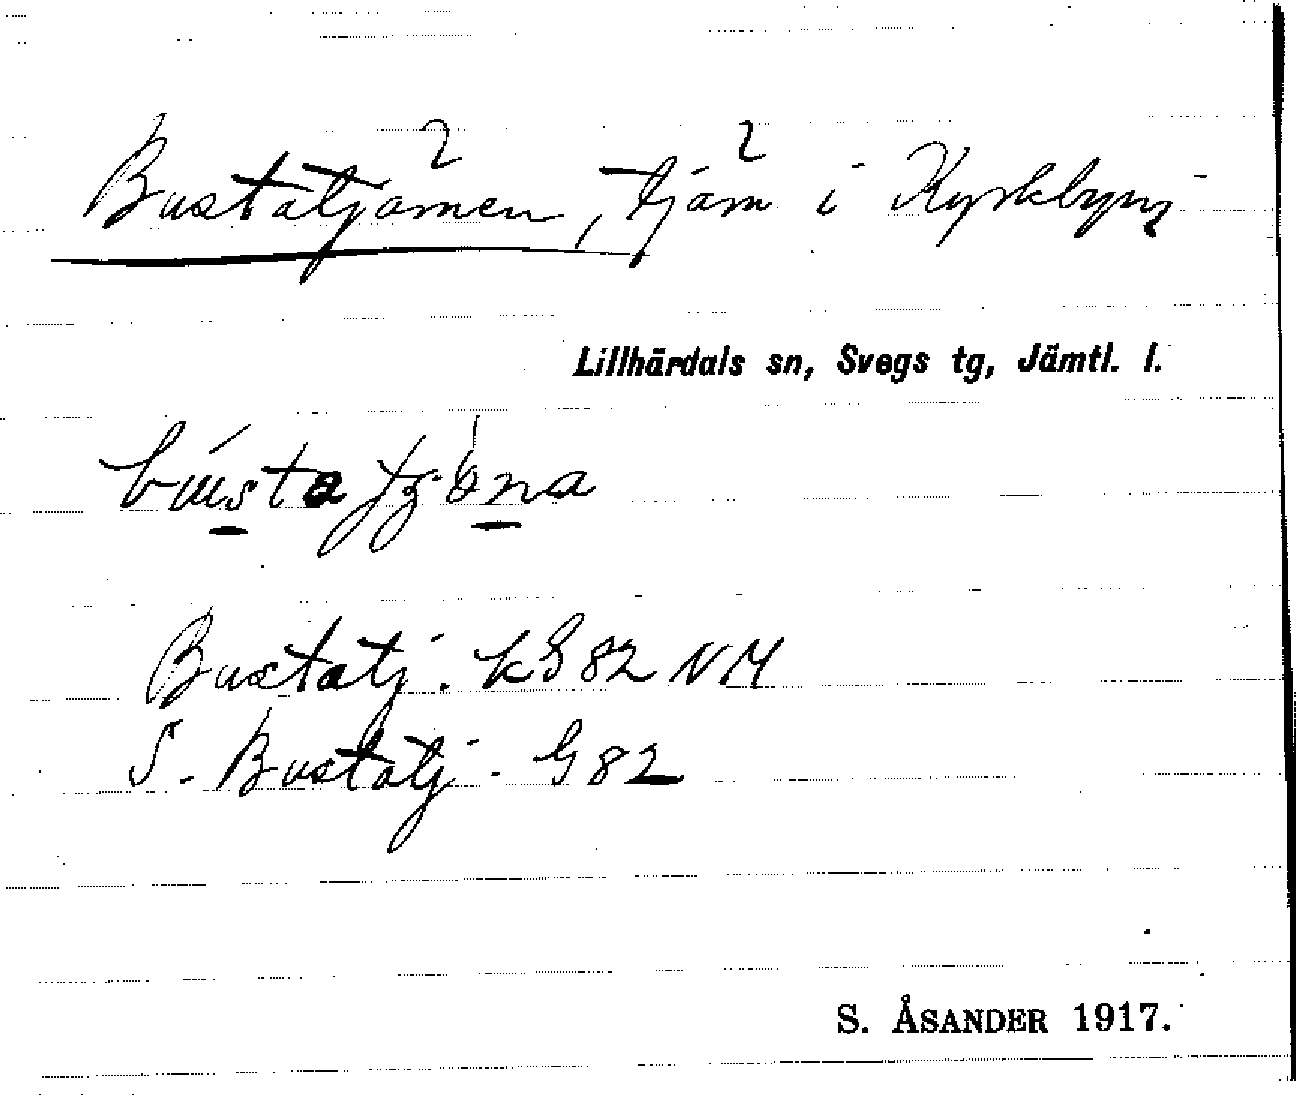 2 2
Bustatjärnen, tjärn i Kyrkbyn,
Lillhärdals sn, Svegs tg, Jämtl. l.
Bustatj. kG82 NM
S. Bustatj. G82
S. ÅSANDER 1917.